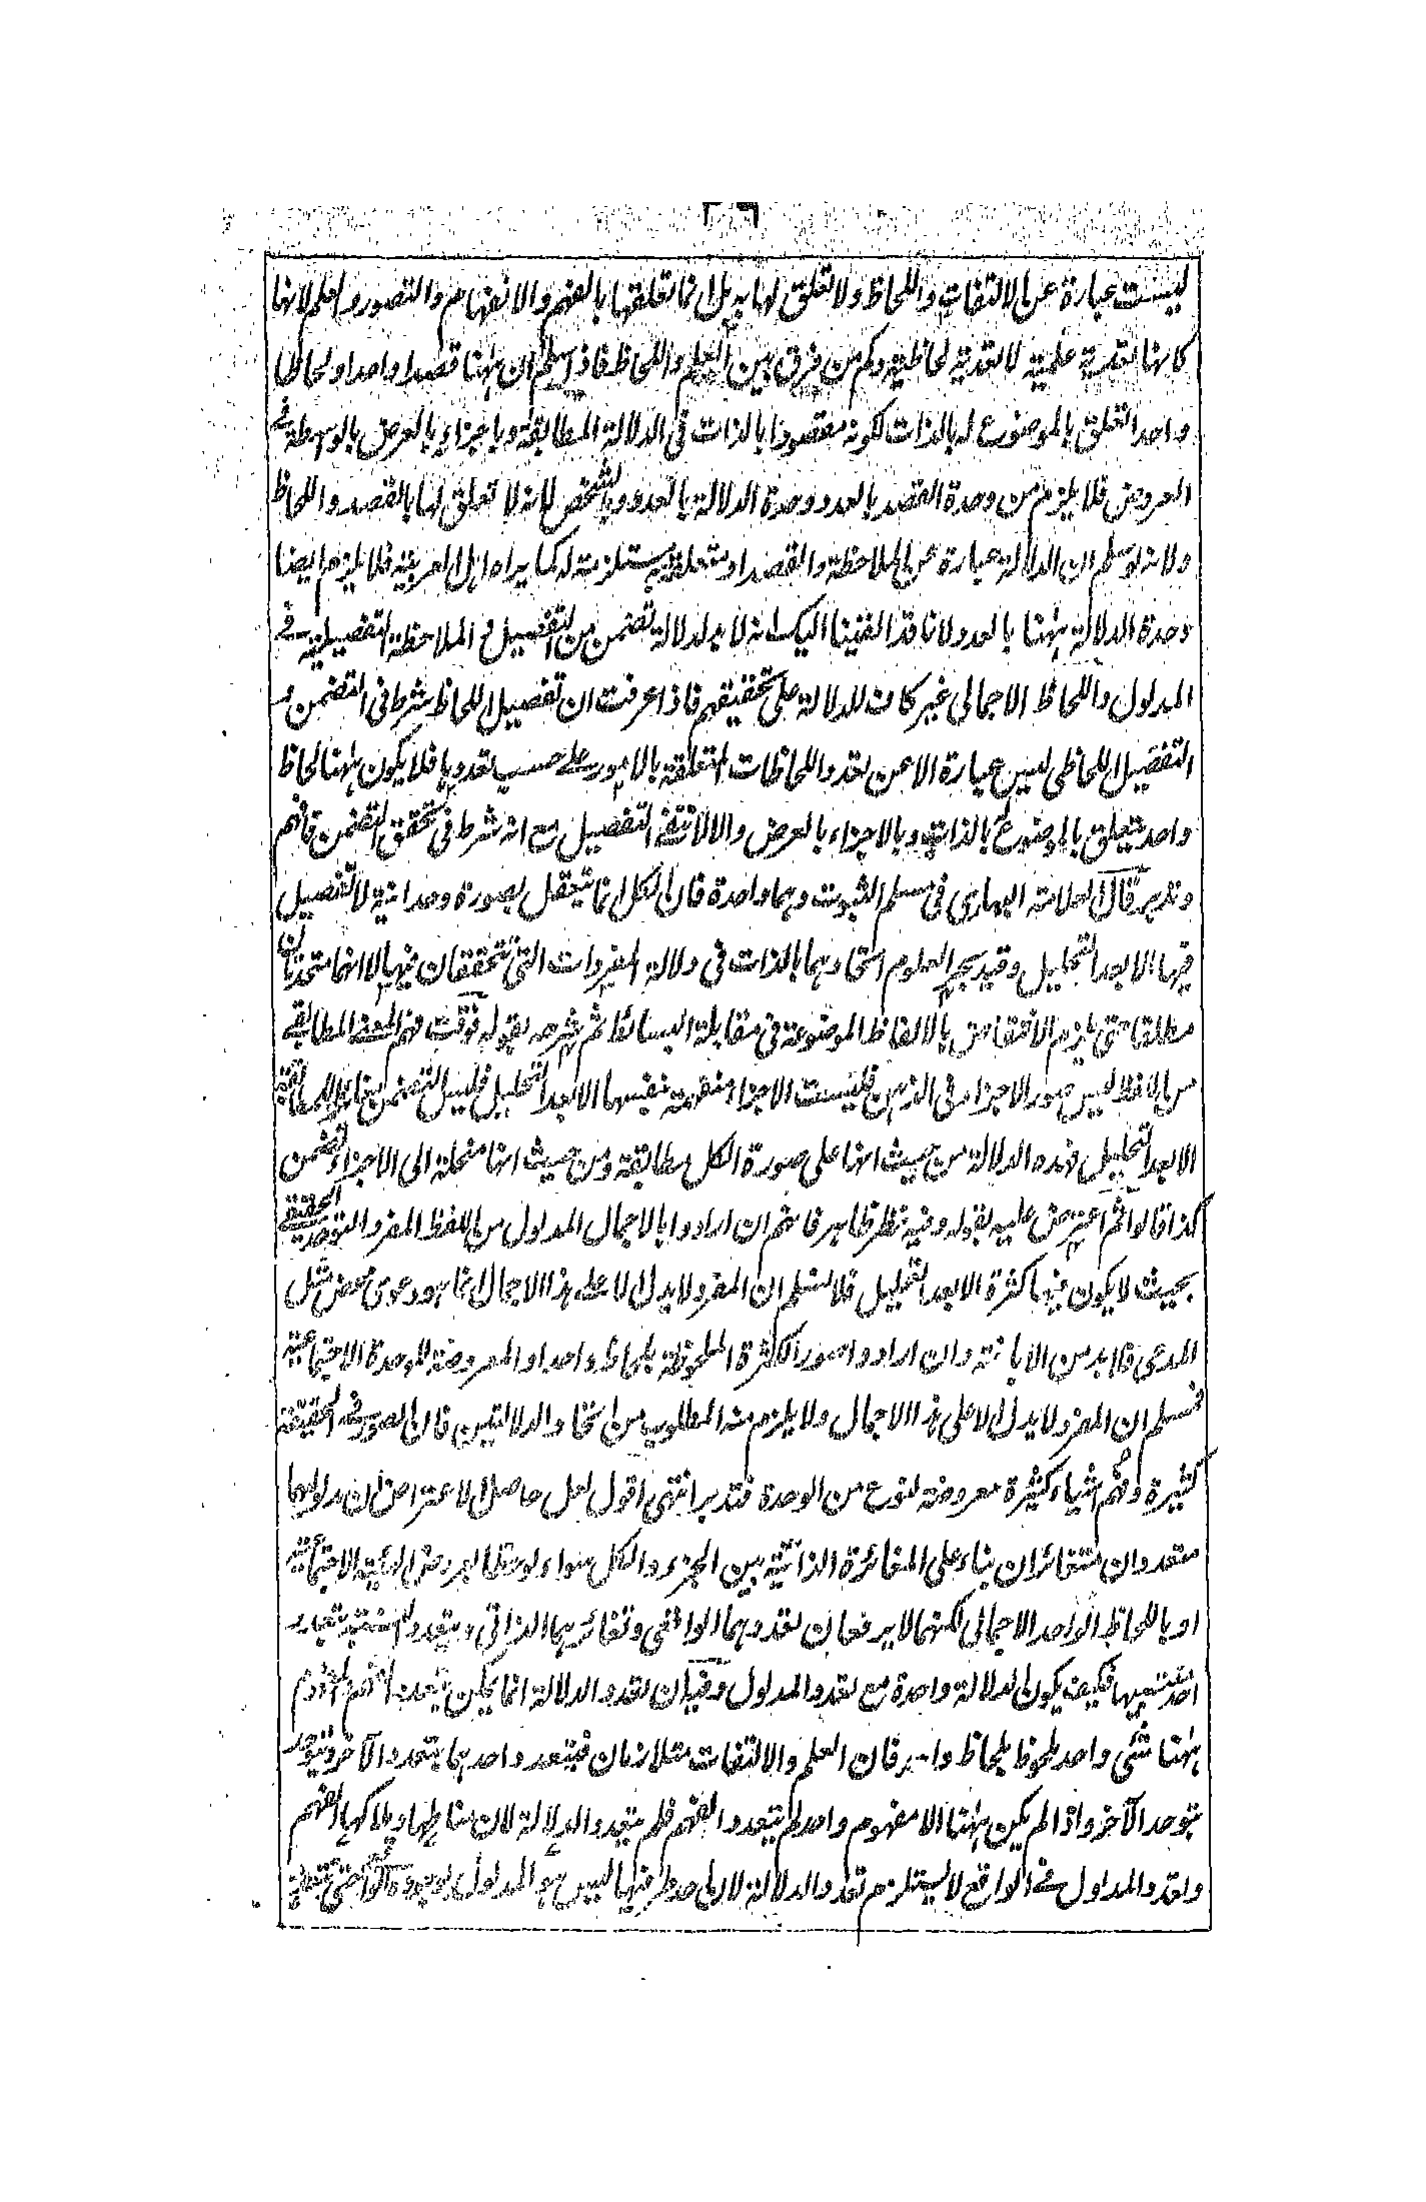 ليست عبارة عن الالتفات واللحاظ ولا تعلق لها به بل انما تعلقها بالفهم والانفهام والتصور والعلم لانها
كانها تعدية علمية لا تعدية لحاظية وكم من فرق بين العلم واللحاظ فاذا سلم ان ههنا قصدا واحدا ولحاظا
واحدا تعلق بالموضوع له بالذات لكونه مقصودا بالذات في الدلالة المطابقة وباجزائه بالعرض بالوسطة في
العروض فلا يلزم من وحدة القصد بالعدد وحدة الدلالة بالعدد وبالشخص لانه لا تعلق لها بالقصد واللحاظ
ولانه لو سلم ان الدلالة عبارة عن الملاحظة والقصد او متعلقة به مستلزمة له كما يراه اهل العربية فلا يلزم ايضا
وحدة الدلالة ههنا بالعدد لانا قد القينا اليك انه لا بد لدلالة تضمن من التفصيل في الملاحظة التفصيلية في
المدلول واللحاظ الاجمالي غير كاف للدلالة على تحقيقهم فاذا عرفت ان تفصيل اللحاظ شرط في التضمن و
التفصيل اللحاظي ليس عبارة الا عن تعدد اللحاظات المتعلقة بالامور على حسب تعددها فلا يكون ههنا لحاظ
واحد يتعلق بالموضوع له بالذات وبالاجزاء بالعرض والا لانتفى التفصيل مع انه شرط في تحقق التضمن فافهم
وتدبر قال العلامة البهاري في مسلم الثبوت وهما واحدة فان الكل انما يتعقل بصورة وحدانية لا تفصيل
فيها الا بعد التحليل وقيد بحر العلوم اتحادهما بالذات في دلالة المفردات التي تتحققان فيها لا انهما متحدتان
مطلقا حتى يلزم الانتقاض بالالفاظ الموضوعة في مقابلة البسائط ثم شرحه بقوله فوقت فهم المعنى المطابقي
من اللفظ ليس صور الاجزاء في الذهن فليست الاجزاء منفهمة بنفسها الا بعد التحليل فليس التضمن
الا بعد التحليل فهذه الدلالة من حيث انها على صورة الكل مطابقة ومن حيث انها منحلة الى الاجزاء تضمن
كذا قالوا ثم اعترض عليه بقوله وفيه نظر ظاهر فانهم ان ارادوا بالاجمال المدلول من اللفظ المفرد التوحد الحقيقي
بحيث لا يكون فيها كثرة الا بعد التحليل فلا نسلم ان المفرد لا يدل الا على هذا الاجمال انما هو دعوى محض مثل
المدعى فلا بد من الابانة وان ارادوا صور الكثرة الملحوظة بلحاظ واحد او المعروضة للوحدة الاجتماعية
فمسلم ان المفرد لا يدل الا على هذا الاجمال ولا يلزم منه المطلوب من اتحاد الدلالتين فان الصور في الحقيقة
كثيرة وفهم اشياء كثيرة معروضة لنوع من الوحدة فتدبر انتهى اقول لعل حاصل الاعتراض ان مدلولهما
متعددان متغائران بناء على المغائرة الذاتية بين الجزء والكل سواء لوحظا بعروض الهيئة الاجتماعية
او باللحاظ الواحد الاجمالي لكنهما لا يرفعان تعددهما الواقعي وتغائرهما الذاتي وتعدد النسبة بتعدد
احد منتسبيها فكيف يكون الدلالة واحدة مع تعدد المدلول وفيه ان تعدد الدلالة انما يمكن بتعدد الفهم
ههنا شئ واحد ملحوظ بلحاظ واحد فان العلم والالتفات متلازمان فيتعدد واحد هما بتعدد الآخر ويتوحد
بتوحد الآخر واذا لم يكن ههنا الا مفهوم واحد لم يتعدد الفهم فلم يتعدد الدلالة لان مناطها وملاكها الفهم
وتعدد المدلول في الواقع لا يستلزم تعدد الدلالة لان احد طرفيها ليس هو المدلول بوجوده الواقعي